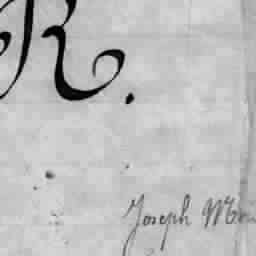 R.
Joseph